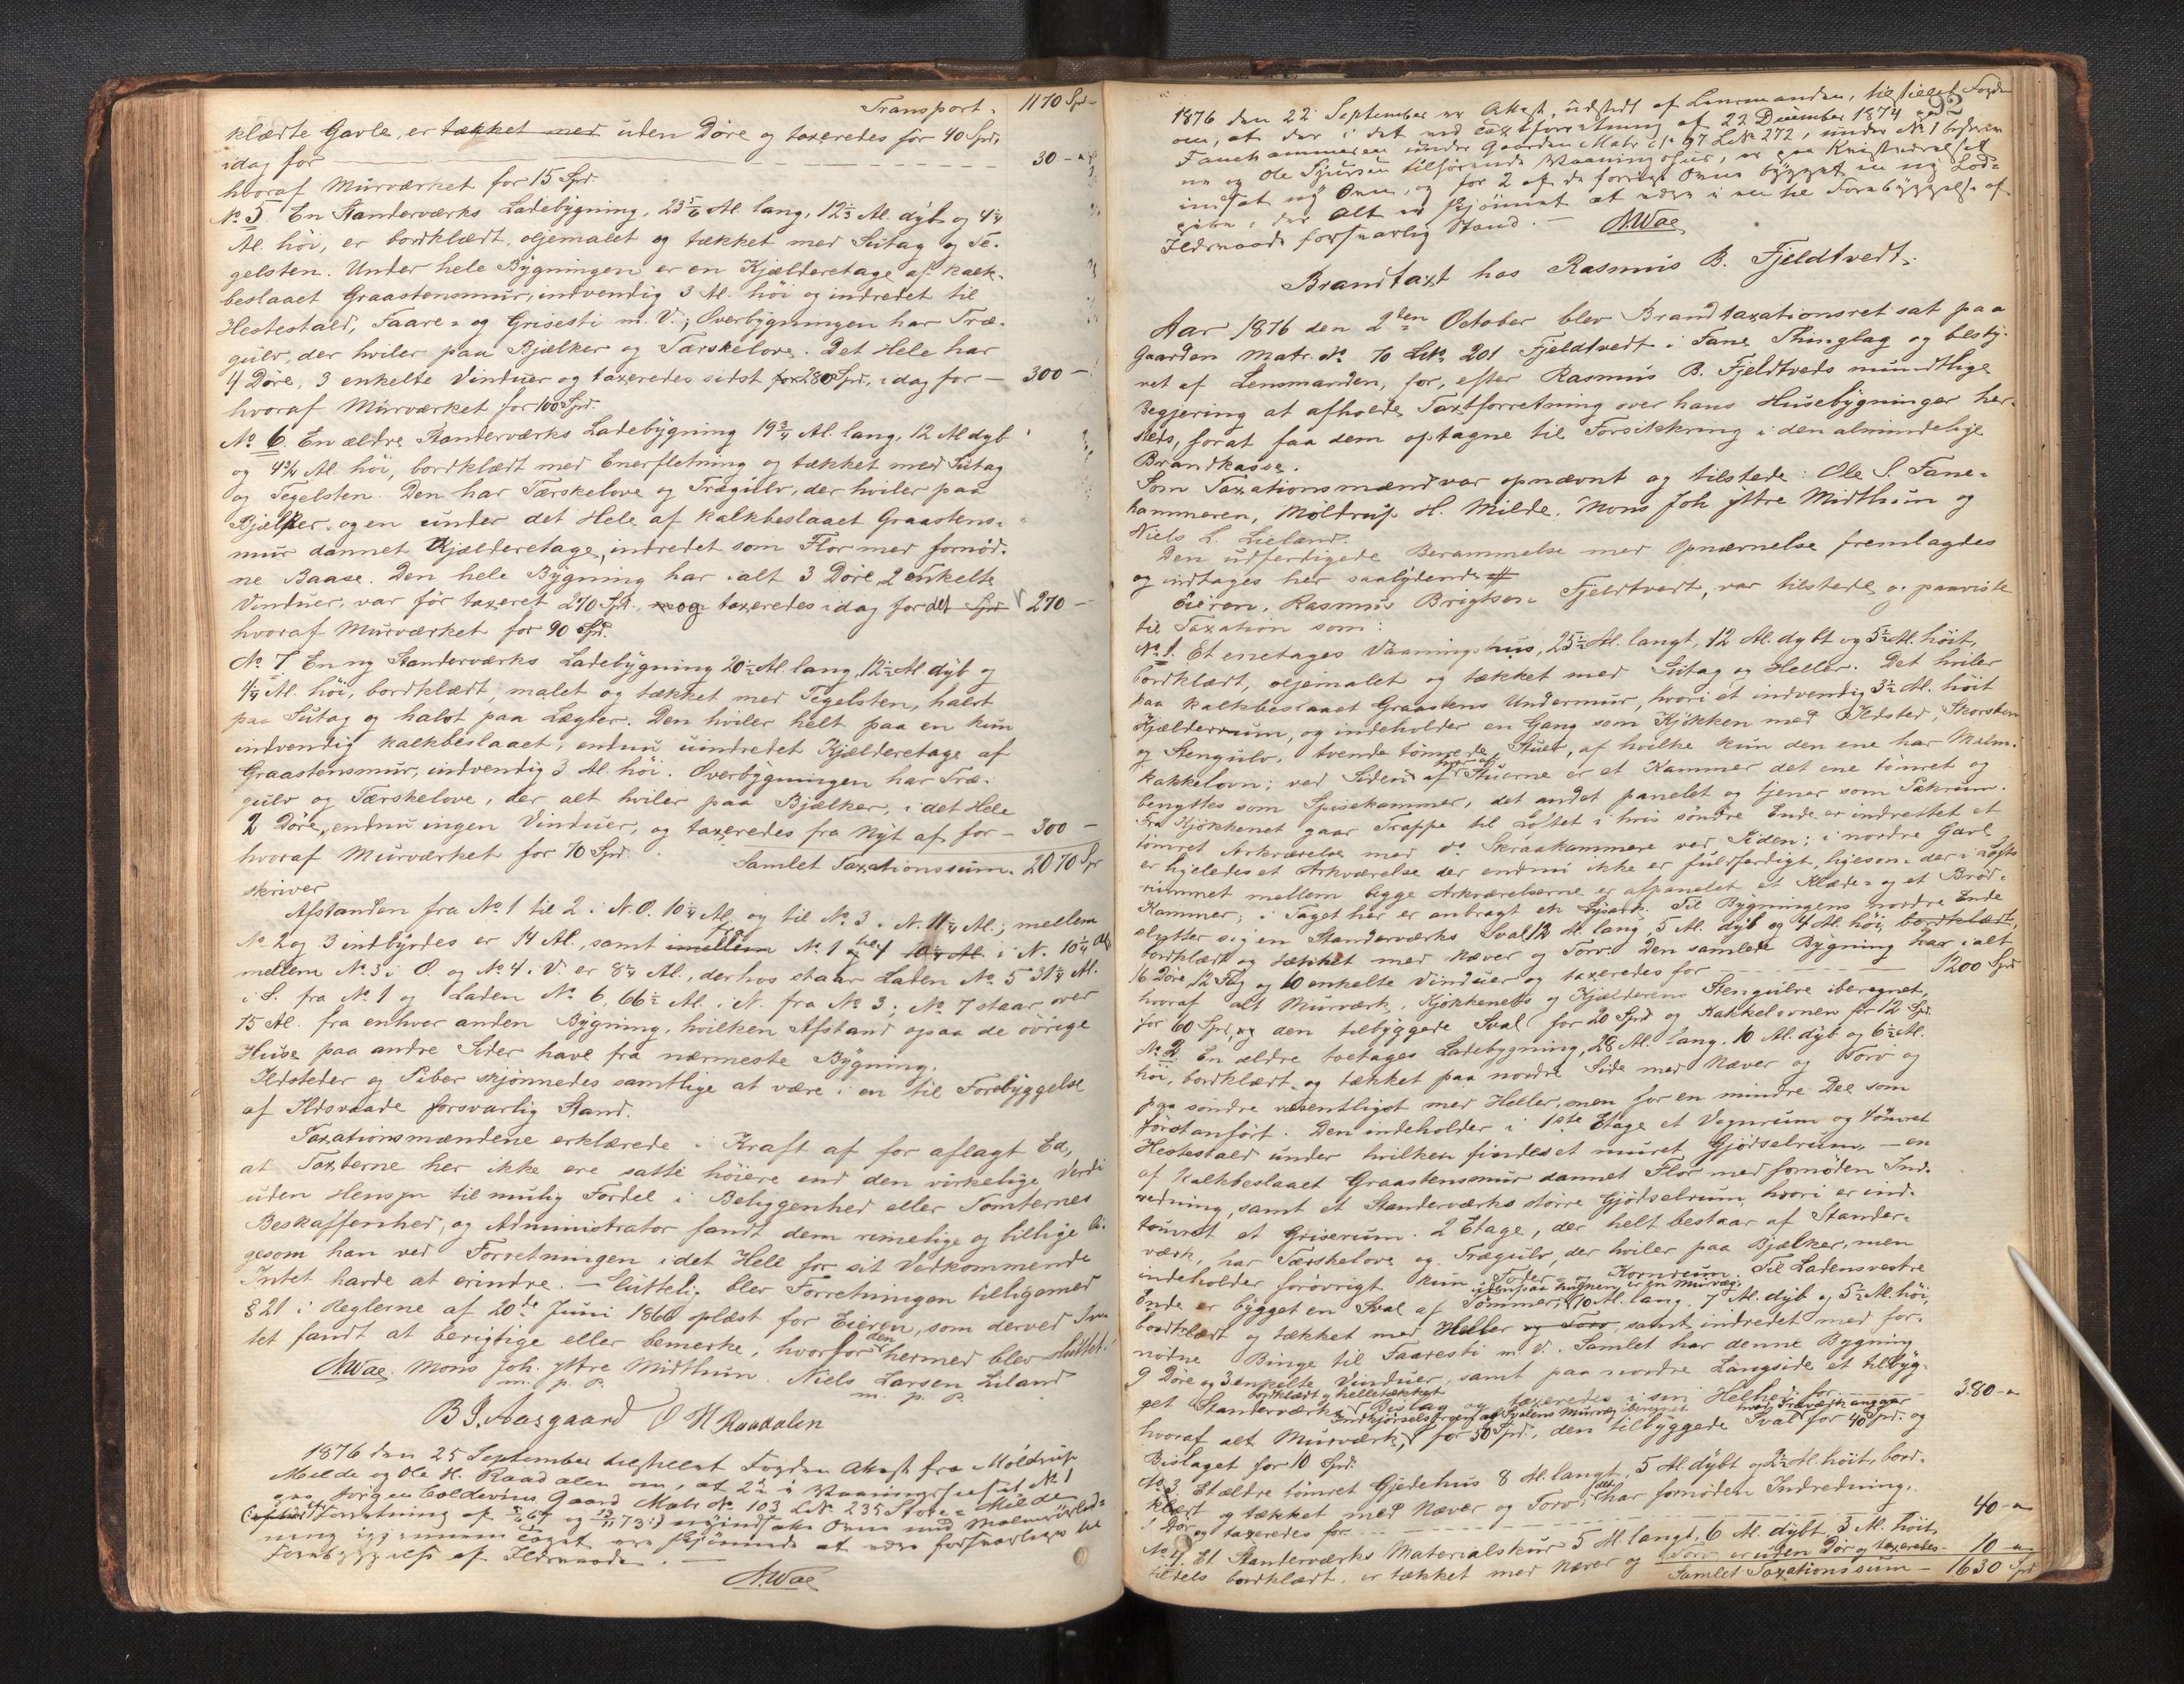 Transport. 1170 Spd
klædte Gavle, er tækket med uden Döre og taxeredes för 40 Spd,
idag for 30 -
hvoraf Murværket for 15 Spd.
No 5. En Standerværks Ladebygning, 23 5/6 Al. lang, 12 1/3 Al. dyb og 4 1/4
Al. höi, er bordklædt, oljemalet og tækket med Sutag og Te-
gelsten. Under hele Bygningen er en Kjælderetage af kalk-
beslaaet Graastensmur, indvendig 3 Al. höi og indredet til
Hestestald, Faare- og Grisesti m. V.; Overbygningen har Træ-
gulv, der hviler paa Bjælker og Tærskelove. Det Hele har
4 Döre, 3 enkelte Vinduer og taxeredes sidst for 280 Spd, idag for - 300 -
hvoraf Murværket for 100 Spd.
No 6. En ældre Standerværks Ladebygning 19 3/4 Al. lang, 12 Al dyb
og 4 3/4 Al. höi, bordklædt med Enerfletning og tækket med Sutag
og Tegelsten. Den har Tærskelove og Trægulv, der hviler paa
Bjælker, og en under det Hele af kalkbeslaaet Graastens-
mur dannet Kjælderetage, indredet som Flor med fornöd-
ne Baase. Den hele Bygning har ialt 3 Döre, 2 enkelte
Vinduer, var för taxeret 270 Spd. og taxeredes idag for det Spd 270 -
hvoraf Murværket for 90 Spd.
No 7. En ny Standerværks Ladebygning 20 1/2 Al lang, 12 1/2 Al dyb og
4 1/4 Al. höi, bordklædt, malet og tækket med Tegelsten, halvt
paa Sutag og halvt paa Lægter. Den hviler helt paa en kun
indvendig kalkbeslaaet, endnu uindredet Kjælderetage af
Graastensmur, indvendig 3 Al. höi. Overbygningen har Træ-
gulv og Tærskelove, der alt hviler paa Bjælker, i det Hele
2 Döre, endnu ingen Vinduer, og taxeredes fra Nyt af for - 300 -
hvoraf Murværket for 70 Spd.
Samlet Taxationssum. 2070 Sp
skriver
Afstanden fra No 1 til 2 i N.O. 10 1/4 Al, og til No 3 i N. 11 1/4 Al; mellem
No 2 og 3 indbyrdes er 14 Al., samt imellem fra No 1 til 4 10 1/4 Al i N. 10 1/4 Al
mellem No 3 i O. og No 4 i V. er 8 1/4 Al., derhos staar Laden No 5 31 1/4 Al.
i S. fra No 1 og Laden No 6, 66 1/2 Al. i N. fra No 3; No 7 staar over
15 Al. fra enhver anden Bygning, hvilken Afstand ogsaa de övrige
Huse paa andre Sider have fra nærmeste Bygning.
Ildsteder og Piber skjönnedes samtlige at være i en til Forebyggelse
af Ildsvaade forsvarlig Stand.
Taxationsmændene erklærede i Kraft af för aflagt Ed,
at Taxterne her ikke ere satte höiere end den virkelige Verdi
uden Hensyn til mulig Fordel i Beliggenhed eller Tomternes
Beskaffenhed, og Administrator fandt dem rimelige og billige li-
gesom han ved Forretningen i det Hele for sit Vedkommende
Intet havde at erindre. - Sluttelig blev Forretningen tilligemed
§ 21 i Reglerne af 20de Juni 1860 oplæst for Eieren, som derved In-
tet fandt at berigtige eller bemerke, hvorfor den hermed blev sluttet.
A. Wae. Mons Joh. Yttre Midthun. Niels Larsen Liland
m. p. P. m. p. P.
B J. Aasgaard O N Raadalen
1876 den 25 September tilstillet Fogden Attest fra Möldrup
Milde og Ole N. Raadalen om, at 2de i Vaaningshuset No 1
paa Jörgen Coldevins Gaard Matr No 103 LNo 235 Store-Milde
Forretning af
ning igjennem Taget ere skjönnede at være forsvarlige til
Forebyggelse af Ildsvaade. -
A. Wae
92
1876 den 22 September er Attest, udstedt af Lensmanden, tilstillet Fogden
om, at der i det ved Taxtforretning af 22 December 1874
Fanehammeren under Gaarden Matr No 97 LNo 272, under No 1 beskrevne
og Ole Sjursen tilhörende Vaaningshus, er paa
indsat ny Ovn, og for 2 af de forrige Ovne bygget en ny Lod-
pibe; der Alt er skjönnet at være i en til Forebyggelse af
Ildsvaade forsvarlig Stand. -
A. Wae
Brandtaxt hos Rasmus B. Fjeldtvedt.
Aar 1876 den 2den October blev Brandtaxationsret sat paa
Gaarden Matr. No 70 LNo 201 Fjeldtvedt i Fane Thinglag og besty-
ret af Lensmanden, for, efter Rasmus B. Fjeldtveds mundtlige
Begjering at afholde Taxtforretning over hans Husebygninger her-
steds, forat faa dem optagne til Forsikkring i den almindelige
Brandkasse.
Som Taxationsmænd var opnævnt og tilstede: Ole S. Fane-
hammeren, Möldrup H. Milde. Mons Joh Yttre Midthun og
Niels L. Lieland.
Den udferdigede Berammelse med Opnævnelse fremlagdes
og indtages her saalydende
Eieren, Rasmus Brigtsen Fjeldtvedt, var tilstede og paaviste
til Taxation som:
No 1. Et enetages Vaaningshus, 25 1/2 Al. langt, 12 Al. dybt og 5 1/2 Al. höit,
bordklædt, oljemalet og tækket med Sutag og Heller. Det hviler
paa kalkbeslaaet Graastens Undermur, hvori et indvendig 3 1/2 Al. höit
Kjælderrum, og indeholder en Gang som Kjökken med Ildsted, Skorsten
og Stengulv, tvende tömrede Stuer, af hvilke kun den ene har Malm-
kakkelovn; ved Siden af hver af Stuerne er et Kammer det ene tömret og
benyttes som Spisekammer, det andet panelet og tjener som Pakrum.
Fra Kjökkenet gaar Trappe til Loftet i hvis söndre Ende er indrettet et
tömret Arkværelse med do Skraakammere ved Siden; i nordre Gavl
er ligeledes et Arkværelse der endnu ikke er fuldferdigt, ligesom der i Lofts
rummet mellem begge Arkværelserne er afpanelet et Klæde- og et Bröd-
Kammer; i Taget her er anbragt en Lysark. Til Bygningens nordre Ende
slutter sig en Standerværks Sval 12 Al. lang, 5 Al. dyb og 4 Al. höi, bordklædt,
bordklædt og tækket med Næver og Torv. Den samlede Bygning har ialt
16 Döre, 12 Fag og 10 enkelte Vinduer og taxeredes for - 1200 Spd
hvoraf alt Murværk, Kjökkenets og Kjælderens Stengulve iberegnet,
for 60 Spd, og den tilbyggede Sval for 20 Spd og Kakkelovnen for 12 Spd.
No 2. En ældre toetages Ladebygning, 28 Al. lang, 10 Al. dyb og 6 1/2 Al.
höi, bordklædt, og tækket paa nordre Side med Næver og Torv og
paa söndre væsentligst med Heller, men for en mindre Del som
först anfört. Den indeholder i 1ste Etage et Vognrum og tömret
Hestestald under hvilken findes et muret Gjödselrum, - en
af Kalkbeslaaet Graastensmur dannet Flor med fornöden Ind-
redning, samt et Standerværks större Gjödselrum, hvori er ind-
tömret et Griserum. 2 Etage, der helt bestaar af Stander-
værk, har Tærskelove og Trægulv, der hviler paa Bjælker, men
indeholder forövrigt kun Foder- og Kornrum. Til Ladens vestre
Ende er bygget en Sval af Tömmer, 10 Al. lang, 7 Al. dyb og 5 1/2 Al. höi,
bordklædt og tækket med Heller og Torv, samt indredet med for-
nödne Binge til Faaresti m. V. Samlet har denne Bygning
9 Döre og 3 enkelte Vinduer, samt paa nordre Langside et tilbyg-
get Standerværks bordklædt og helletækket Bislag og taxeredes i sin Helhed for 380 -
hvoraf alt Murværk, Indkjörselsbroen og Svalens Murvæg iberegnet for 50 Spd, den tilbyggede Sval hvad Træværk angaar for 40 Spd. og
Bislaget for 10 Spd.
No 3. Et ældre tömret Gjedehus 8 Al. langt, 5 Al. dybt og 2 1/2 Al. höit, bord-
klædt og tækket med Næver og Torv, har fornöden Indredning,
1 Dör og taxeredes for 40 -
No 4. Et Standerværks Materialskur 5 Al. langt, 6 Al. dybt, 3 Al. höit,
tildels bordklædt, er tækket med Næver og Torv er uden Dör og taxeredes - 10 -
Samlet Taxationssum - 1630 Spd